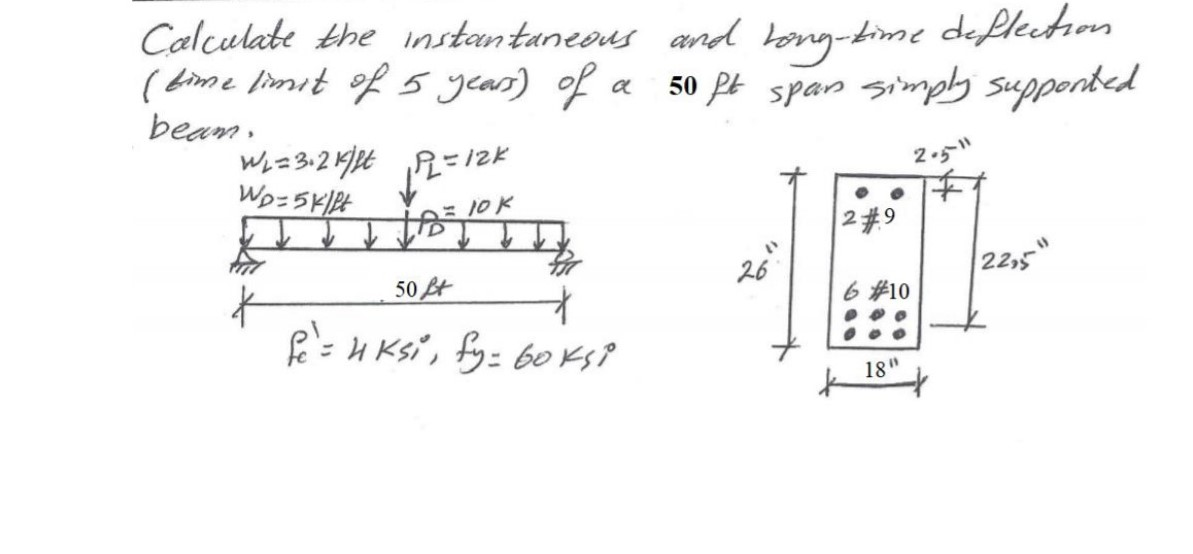 Calculate the instantaneous and Long-time deflection
(time limit of 5 years) of a 50 ft span simply supported
beam.
WL=3.2 K/ft PL=12K
WD=5K/ft PD=10 K
50 ft
fc'=4 Ksi, fy=60 Ksi
2.5"
2#9
26"
22,5"
6 #10
18"